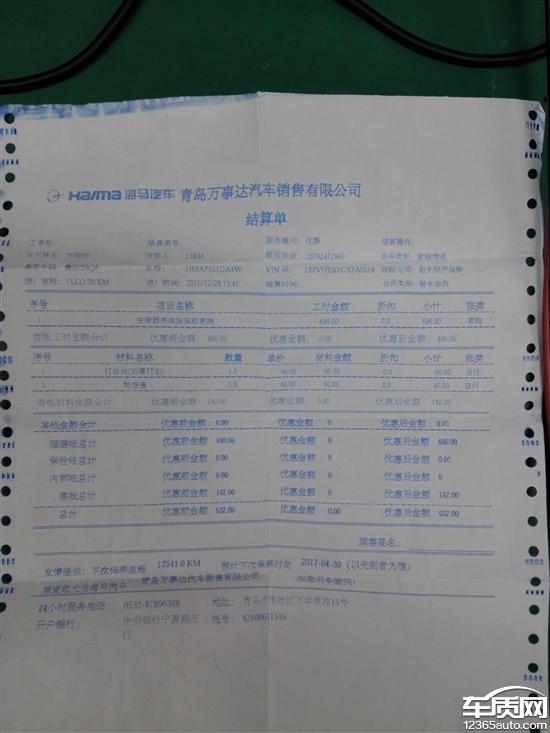 Haima 海马汽车 青岛万事达汽车销售有限公司
结算单
工单号: 结算单号: 服务顾问: 结算操作:
车主姓名: 送修人: 联系电话: 业务类别: 索赔维修
车型: HMA7161GA4W VIN 码: 保险公司:
进厂时间: 2015/12/28 13:41 结算时间: 会员类别: 银卡会员
序号 项目名称 工时金额 折扣 小计 账类
1 变速器壳体拆除和更换 490.00 0 490.00 索赔
客帐工时金额合计 优惠前金额: 490.00 优惠金额: 0 优惠后金额: 490.00
序号 材料名称 数量 单价 材料金额 折扣 小计 账类
1 灯总成(后雾灯右) 1.0 96.00 96.00 0 96.00 自付
防冻液 1.0 46.00 46.00 0 46.00 自付
客帐材料金额合计 优惠前金额: 142.00 优惠金额: 0 优惠后金额: 142.00
其他金额合计 优惠前金额: 0.00 优惠金额 0 优惠后金额: 0.00
索赔帐总计 优惠前金额 490.00 优惠金额 0 优惠后金额 490.00
保险帐总计 优惠前金额 0.00 优惠金额 0 优惠后金额 0.00
内部帐总计 优惠前金额 0.00 优惠金额 0 优惠后金额 0.00
客帐总计 优惠前金额 142.00 优惠金额 0 优惠后金额 142.00
总计 优惠前金额 632.00 优惠金额 0.00 优惠后金额 632.00
顾客签名:
友情提示: 下次保养里程 17541.0 KM 预计下次保养时间 2017-04-30 (以先到者为准)
感谢您光临海马汽车 青岛万事达汽车销售有限公司 祝您用车愉快!
24小时服务电话: 0532-87896388 地址: 青岛市李沧区万年泉路15号
开户银行: 中信银行宁夏路支 帐号:
行
车质网
12365auto.com